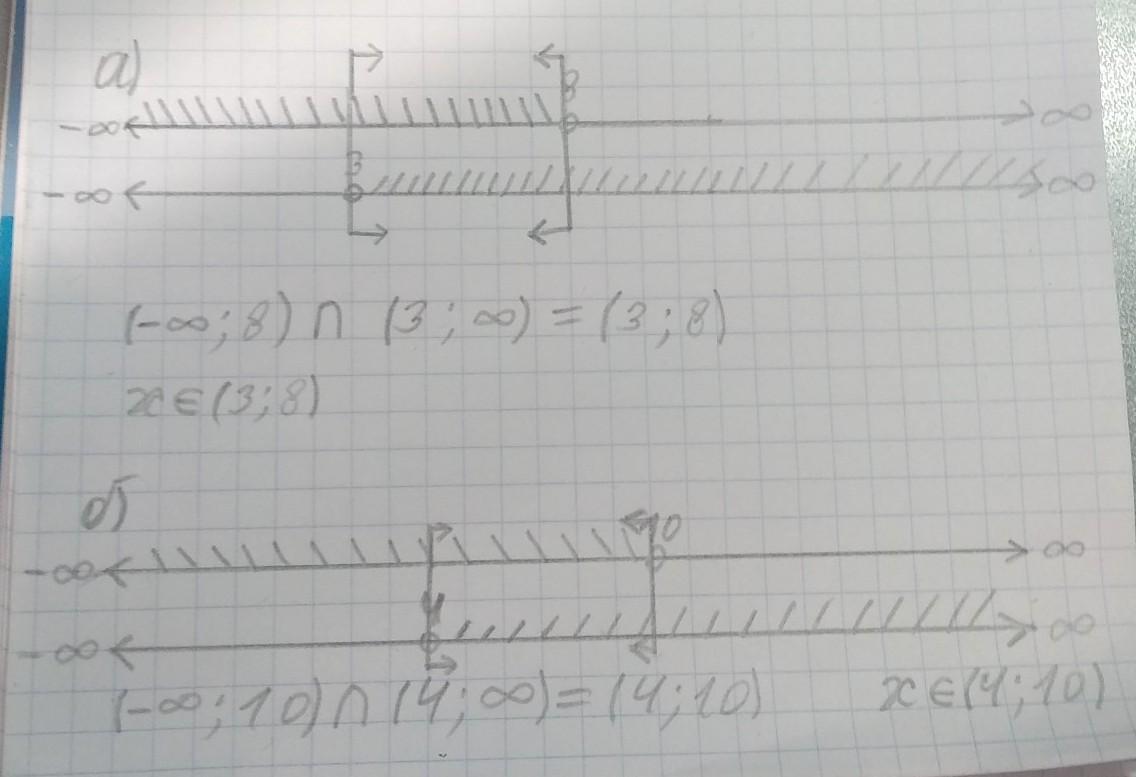 а)
8
-∞ ∞
3
-∞ ∞
(-∞; 8) ∩ (3; ∞) = (3; 8)
x ∈ (3; 8)
б)
10
-∞ ∞
4
-∞ ∞
(-∞; 10) ∩ (4; ∞) = (4; 10) x ∈ (4; 10)